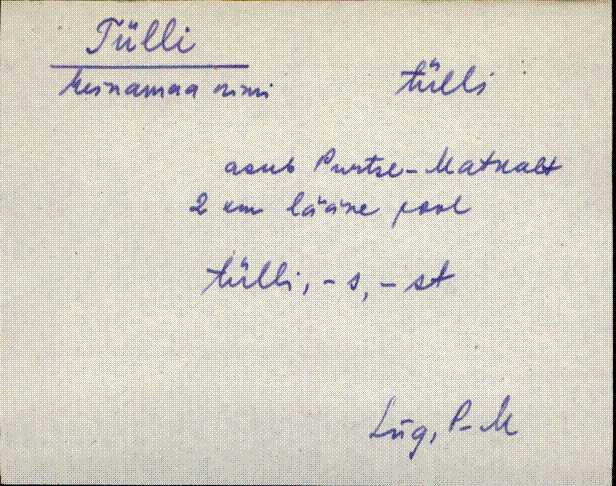 Tülli
heinamaa nimi tülli
asub Purtse-Matkalt
2 km lääne pool
tülli, -s, -st
Lüg, P-M